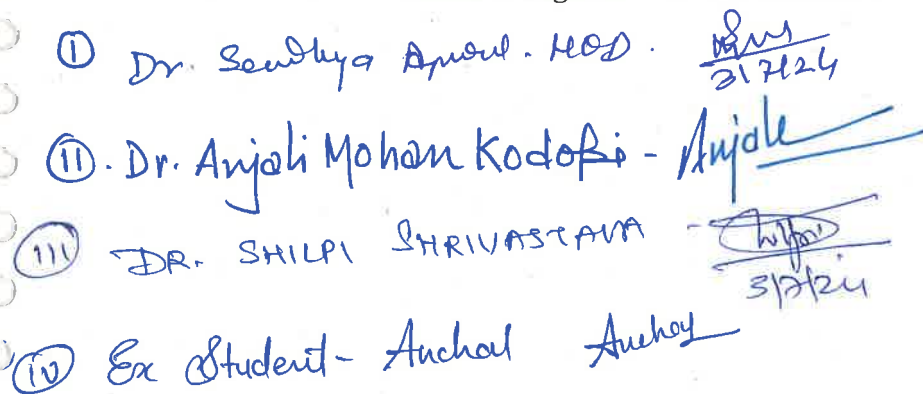 ① Dr. Sandhya Apoul. HOD. 3/7/24
⑪. Dr. Anjali Mohan Kodopi - Anjali
⑪⑪ DR. SHILPI SHRIVASTAVA - 3/7/24
(iv) Ex Student - Anchal Anchal